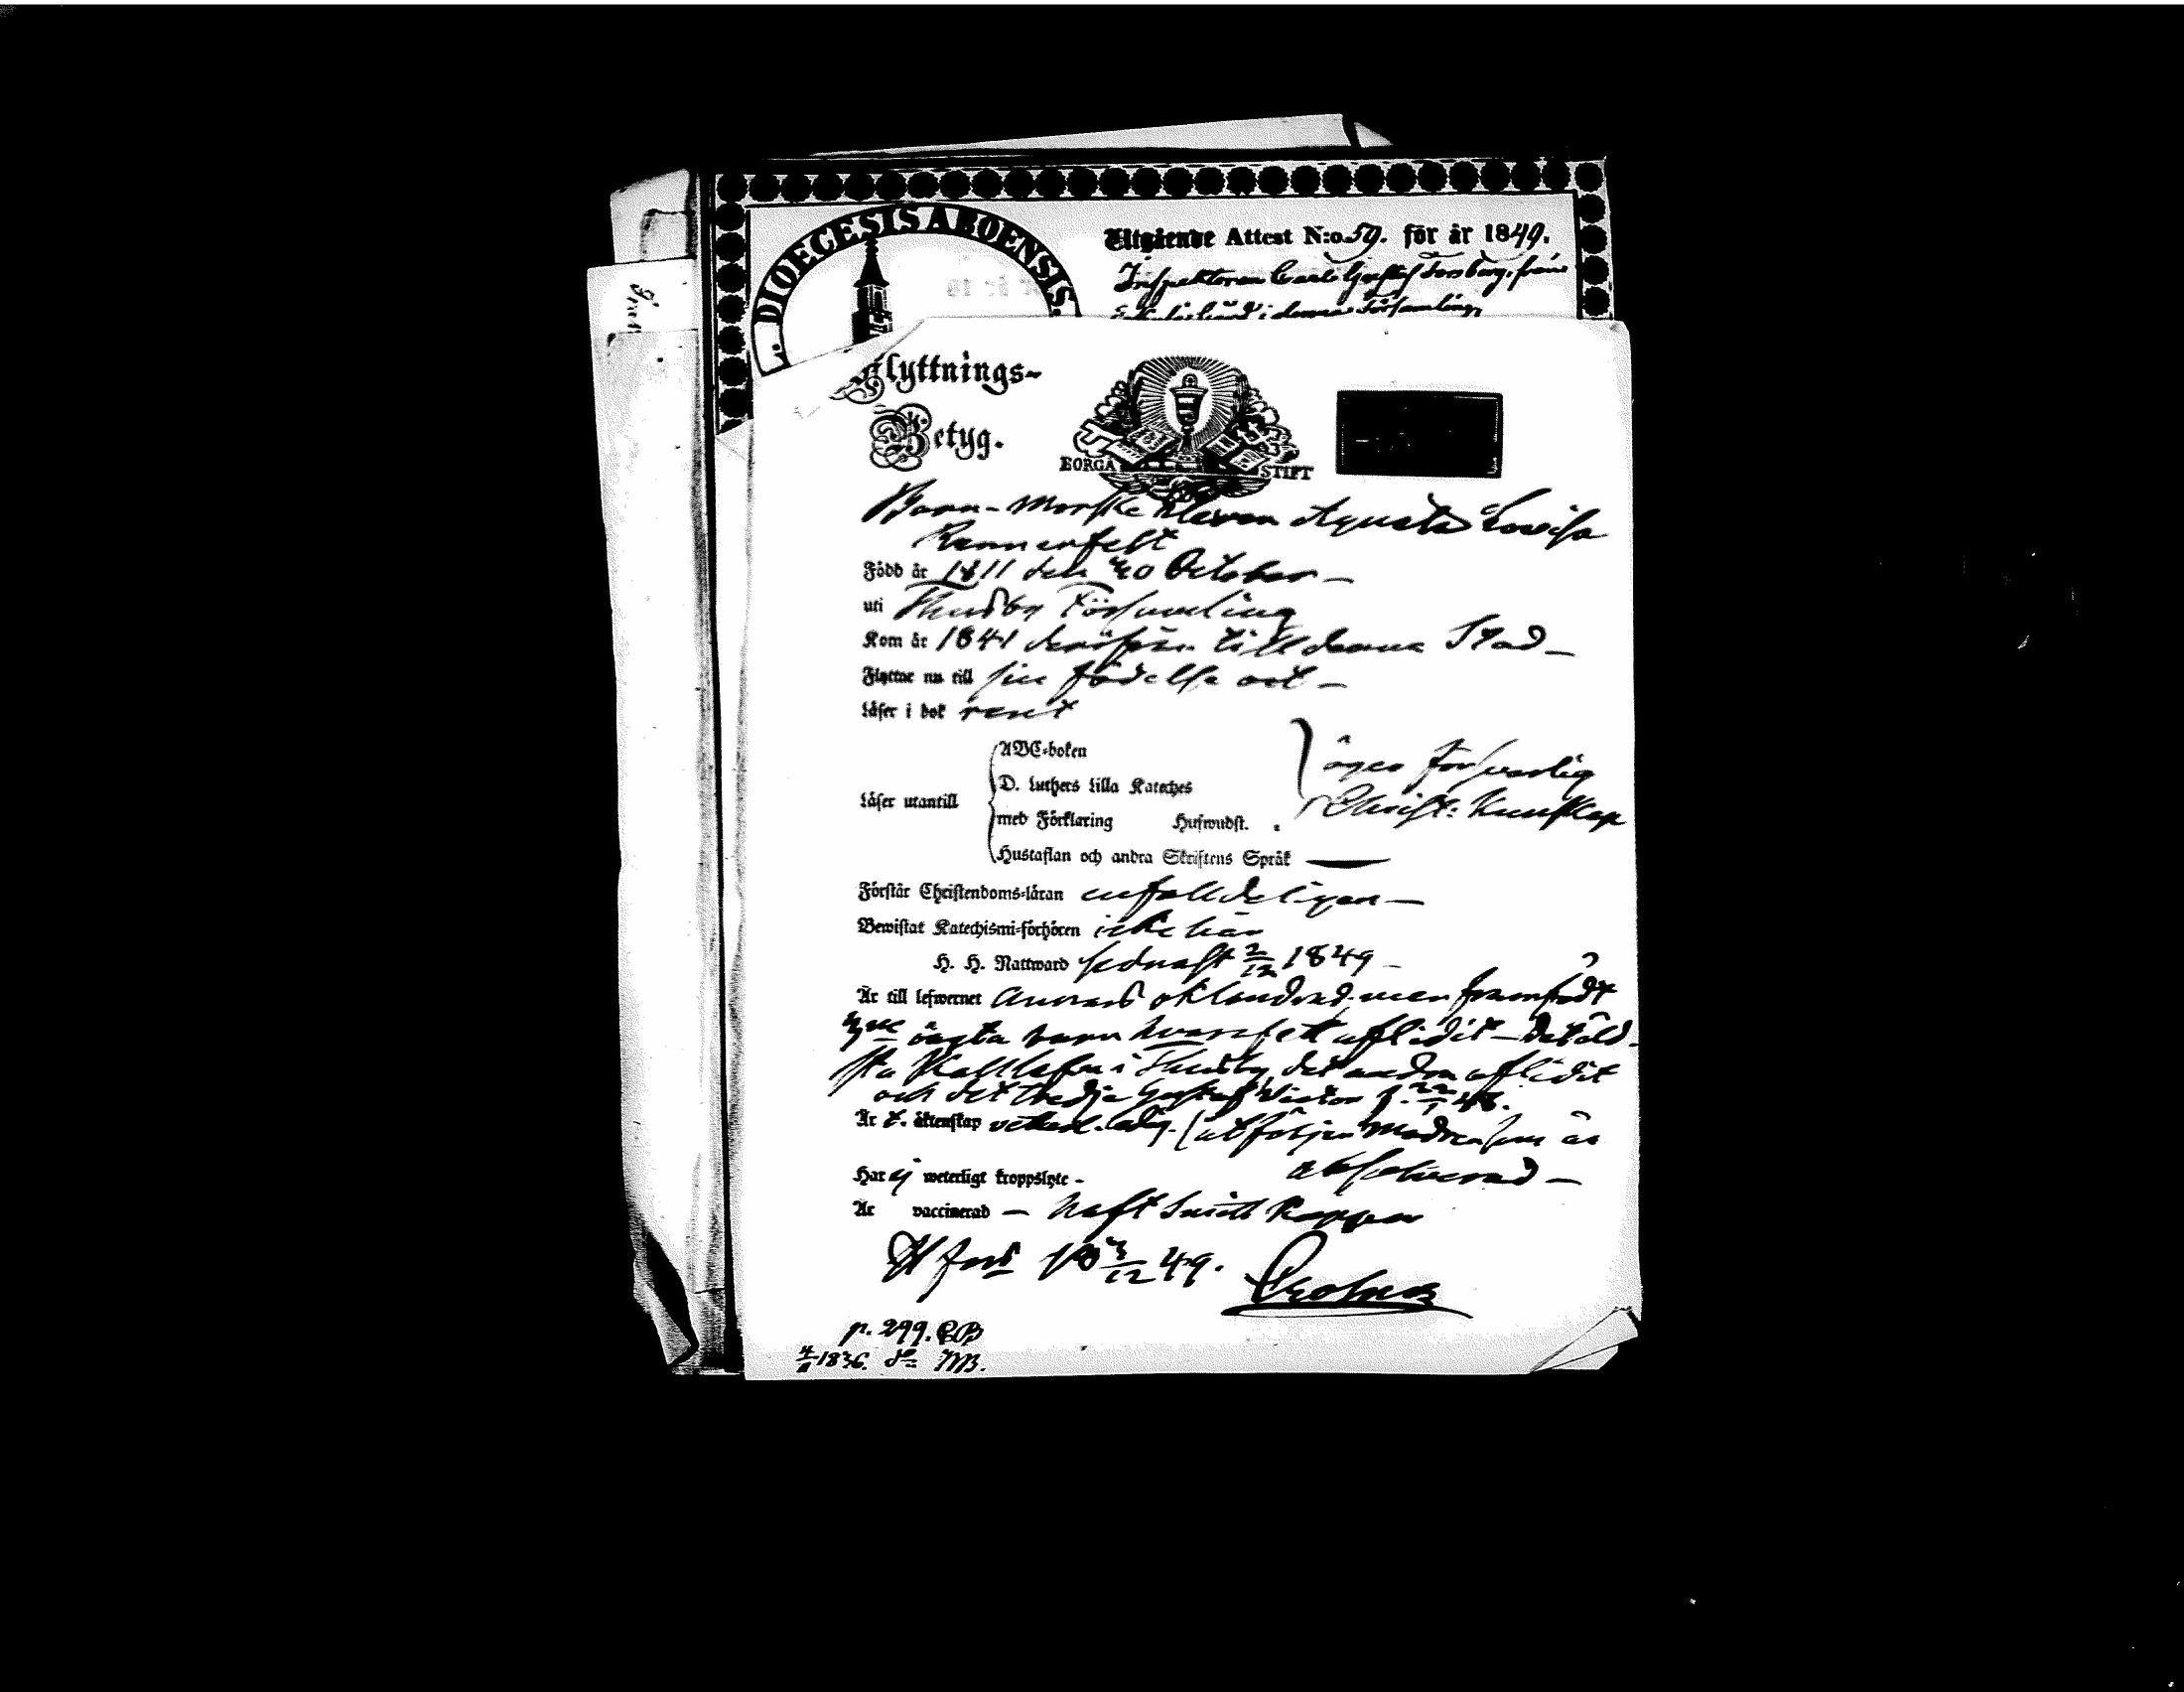 L. DIOECESIS ABOENSIS.
Utgående Attest N:o 59. för år 1849.
Inspektoren Carl Gustaf Forsberg, från
i denna Församling
Flyttnings-
Betyg.
BORGÅ STIFT
Barn-morske Eleven Agusta Lovisa
Rennerfelt
Född år 1811 den 20 October –
uti Thusby Församling
Kom år 1841 derifrån till denna Stad –
Flyttar nu till sin födelse ort –
Läser i bok rent
Läser utantill
ABC-boken
D. Luthers Lilla Kateches
med Förklaring Hufwudst.
Hustaflan och andra Skriftens Språk —
äger försvarlig
Christ: kunskap
Förstår Christendoms-läran enfalldeligen –
Bewistat Katechismi-förhören icke här
H. H. Nattward sednast 2/12 1849 –
Är till lefwernet annars oklandrad men framfödt
3ne oägta barn hvaraf ett aflidit – Det äld-
sta i Thusby det andra aflidit
och det tredje Gustaf Victor f. 22/1 48.
Är t. äktenskap ledig. (åtföljer Modren som är
absolverad –
Har ej weterligt kroppslyte -
Är vaccinerad – haft Smitt koppor
H fors 3/12 49.
p. 299. CB
1836. MB.